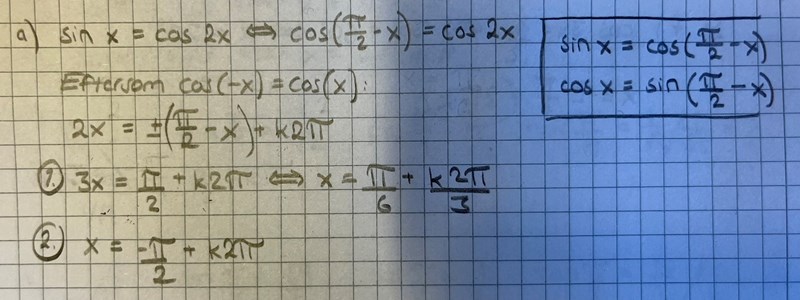 a) sin x = cos 2x ⇔ cos(π/2 - x) = cos 2x
Eftersom cos(-x) = cos(x):
2x = ±(π/2 - x) + k2π
1. 3x = π/2 + k2π ⇔ x = π/6 + k2π/3
2. x = -π/2 + k2π
sin x = cos(π/2 - x)
cos x = sin(π/2 - x)